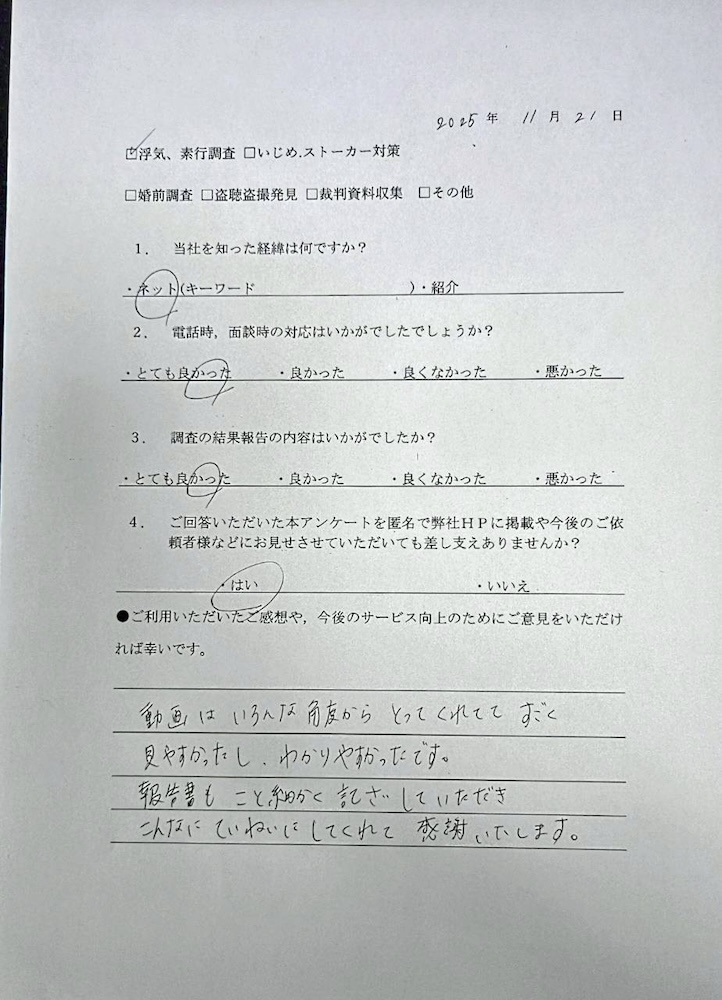 2025年 11月 21日
☑浮気、素行調査 □いじめ.ストーカー対策
□婚前調査 □盗聴盗撮発見 □裁判資料収集 □その他
1. 当社を知った経緯は何ですか?
・ネット(キーワード )・紹介
2. 電話時,面談時の対応はいかがでしたでしょうか?
・とても良かった ・良かった ・良くなかった ・悪かった
3. 調査の結果報告の内容はいかがでしたか?
・とても良かった ・良かった ・良くなかった ・悪かった
4. ご回答いただいた本アンケートを匿名で弊社HPに掲載や今後のご依
頼者様などにお見せさせていただいても差し支えありませんか?
・はい ・いいえ
●ご利用いただいたご感想や,今後のサービス向上のためにご意見をいただけ
れば幸いです。
動画は いろんな角度から とってくれてて すごく
見やすかったし、わかりやすかったです。
報告書も こと細かく 記ざしていただき
こんなに ていねいに してくれて 感謝いたします。